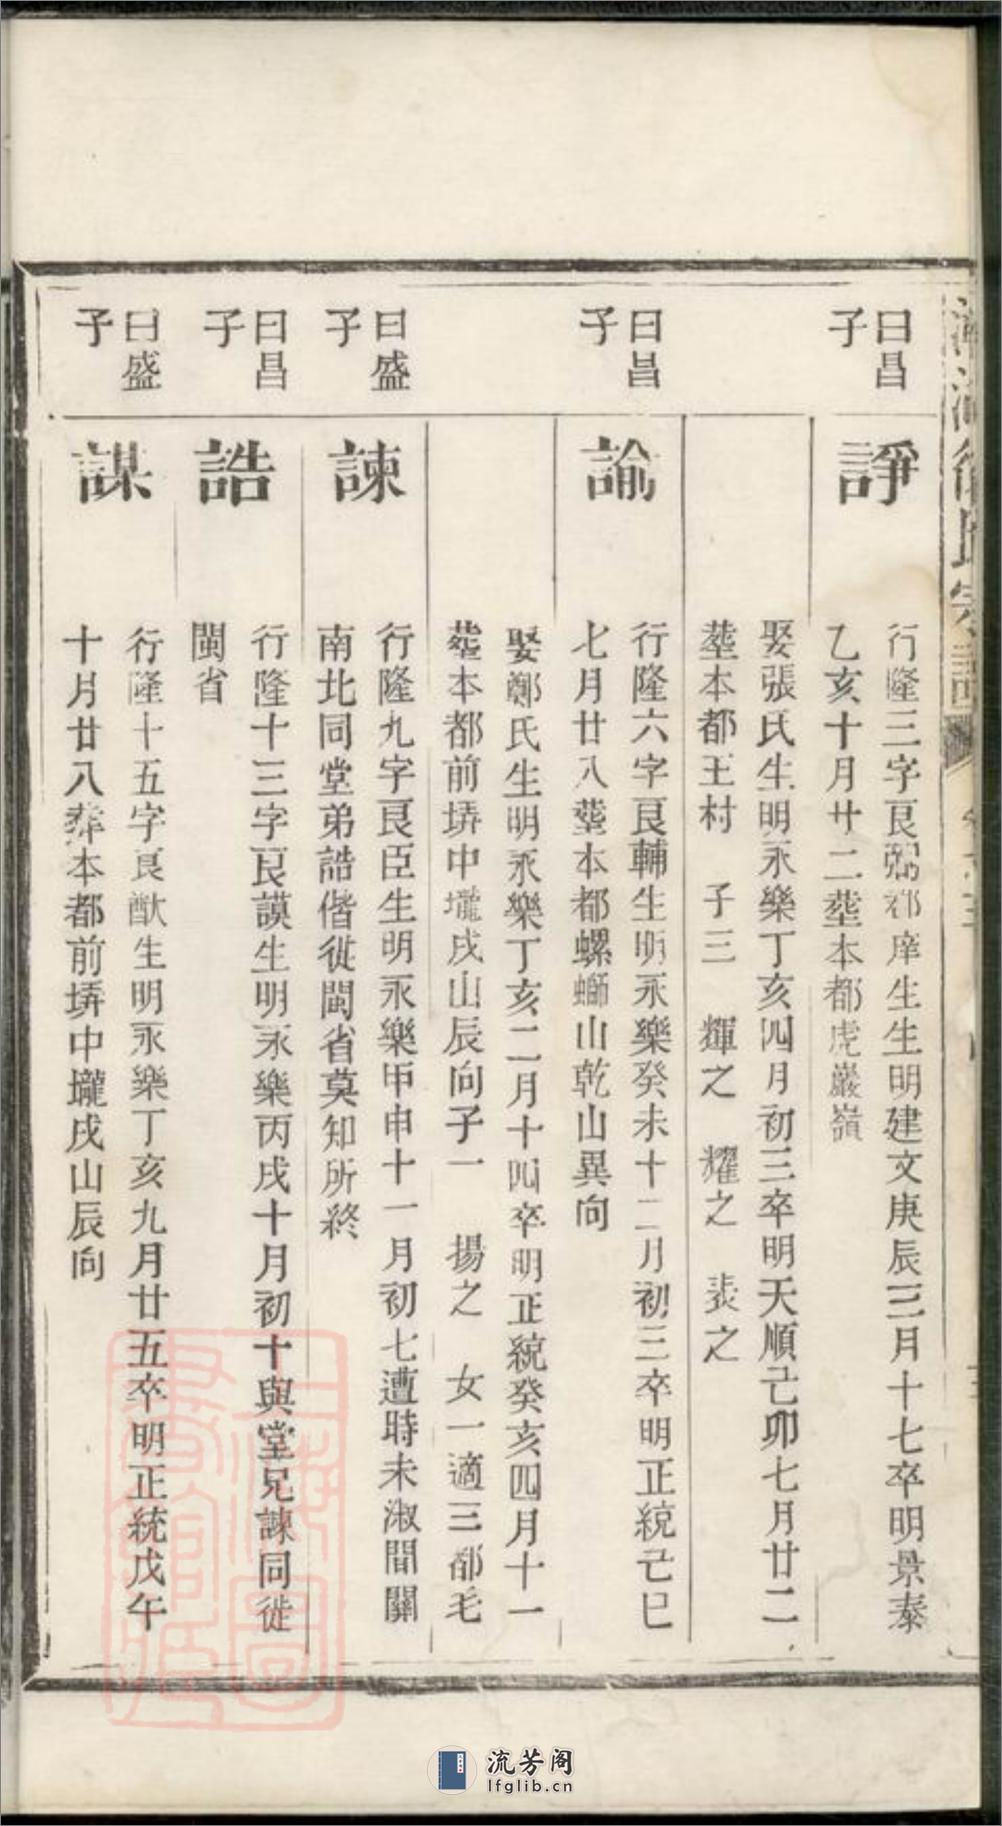 曰昌
子
諍
行隆三字良弼郡庠生生明建文庚辰三月十七卒明景泰
乙亥十月廿二塟本都虎巖嶺
娶張氏生明永樂丁亥四月初三卒明天順己卯七月廿二
塟本都王村 子三 輝之 耀之 裴之
曰昌
子
諭
行隆六字良輔生明永樂癸未十二月初三卒明正統己巳
七月廿八塟本都螺螄山乾山異向
娶鄭氏生明永樂丁亥二月十四卒明正統癸亥四月十一
塟本都前塝中壠戌山辰向子一 揚之 女一適三都毛
曰盛
子
諫
行隆九字良臣生明永樂甲申十一月初七遭時未淑間關
南北同堂弟誥偕徙閩省莫知所終
曰昌
子
誥
行隆十三字良謨生明永樂丙戌十月初十與堂兄諫同徙
閩省
曰盛
子
謀
行隆十五字良猷生明永樂丁亥九月廿五卒明正統戊午
十月廿八塟本都前塝中壠戌山辰向
上海圖
書館藏
流芳阁
lfglib.cn